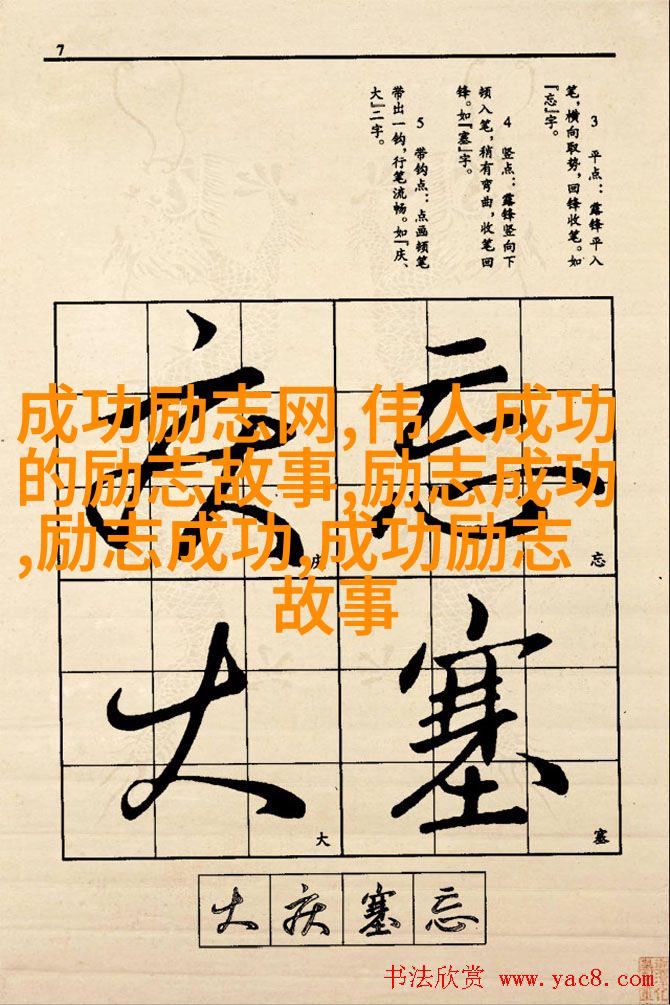 7
3 平点：露锋平入
笔，横向取势，回锋收笔。如
『忘』字。
4 竖点：露锋竖向下
顿入笔，稍有弯曲，收笔回
锋。如『塞』字。
5 带钩点：点画顿笔
带出一钩，行笔流畅。如『庆、
大』二字。
成功励志网,伟人成功
的励志故事,励志成功
,励志成功,成功励志
故事
忘
忘
庆
庆
塞
塞
大
大
大庆塞忘
书法欣赏 www.yac8.com